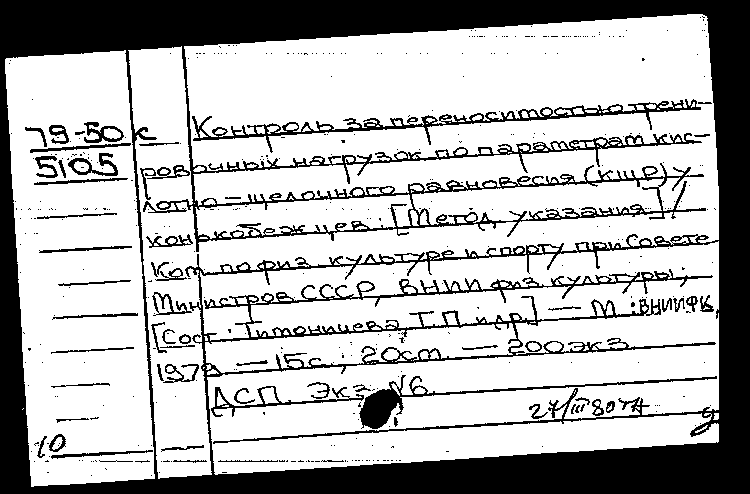 79-50 к
5105
Контроль за переносимостью трени-
ровочных нагрузок по параметрам кис-
лотно-щелочного равновесия (КЩР) у
конькобежцев: [Метод. указания] /
Ком. по физ. культуре и спорту при Совете
Министров СССР, ВНИИ физ. культуры;
[Сост.: Тимонищева, Т.П. и др.] — М.: ВНИИФК,
1979 — 15 с.; 20 ст. — 200 экз.
ДСП. Экз. №6.
27/III 80
10